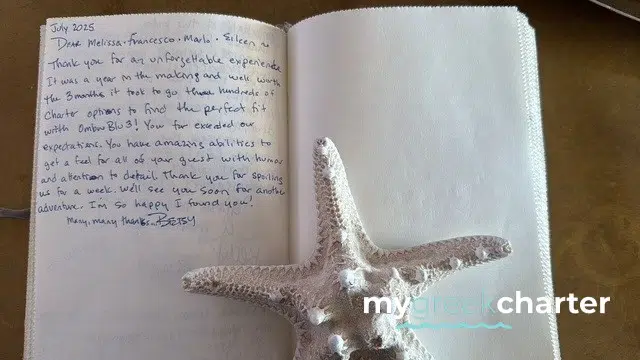 July 2025
Dear Melissa • Francesco • Marlo • Eileen
Thank you for an unforgettable experience
It was a year in the making and well worth
the 3 months it took to go threw hundreds of
Charter options to find the perfect fit
with Ombre Blu 3! You far exceeded our
expectations. You have amazing abilities to
get a feel for all of your guest with humor
and attention to detail. Thank you for spoiling
us for a week. We'll see you soon for another
adventure. I'm so happy I found you!
Many, many thanks, BETSY
mygreekcharter